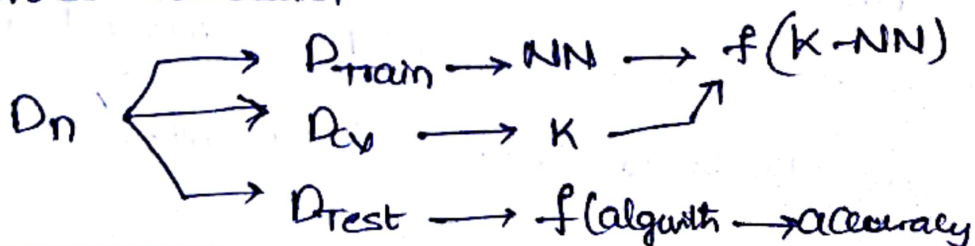 D_Train → NN → f(K-NN)
D_n D_cv → K
D_Test → f(algorith → accuracy